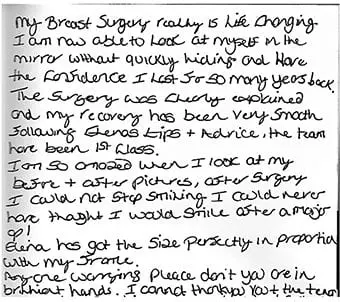 My Breast Surgery really is Life Changing.
I am now able to Look at myself in the
mirror without quickly hiding and Have
the Confidence I Lost for so many years back.
The Surgery was Clearly explained
and my recovery has been very Smooth
following Elenas tips + Advice, the team
have been 1st Class.
I am so amazed when I look at my
before + after pictures, after Surgery
I could not stop smiling I could never
have thought I would smile after a major
op!
Elena has got the Size Perfectly in Proportion
with my frame.
Anyone worrying Please don't you are in
brilliant hands. I cannot thank you + the team